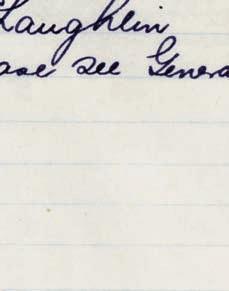 Laughlin
ase see Genera